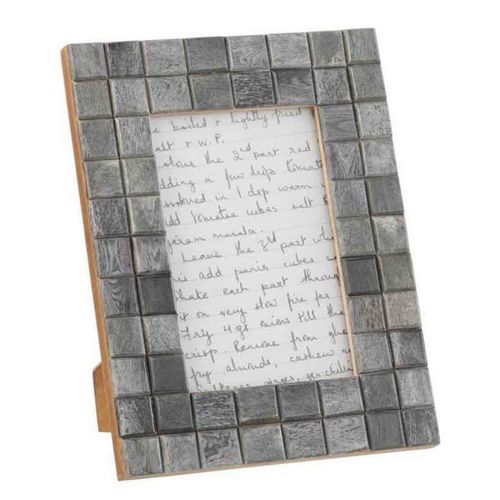 boiled & lightly fried
alt & W.P.
olour the 2nd part red
dding a few drops tomato
olored in 1 dsp warm
dd tomatoe cubes salt &
aram masala.
Leave the 3rd part whi
is add panir cubes
Shake each part through
t on very slow fire for
Fry 4 gr. onions till the
crisp. Remove from ghee
fry almonds, cashew n